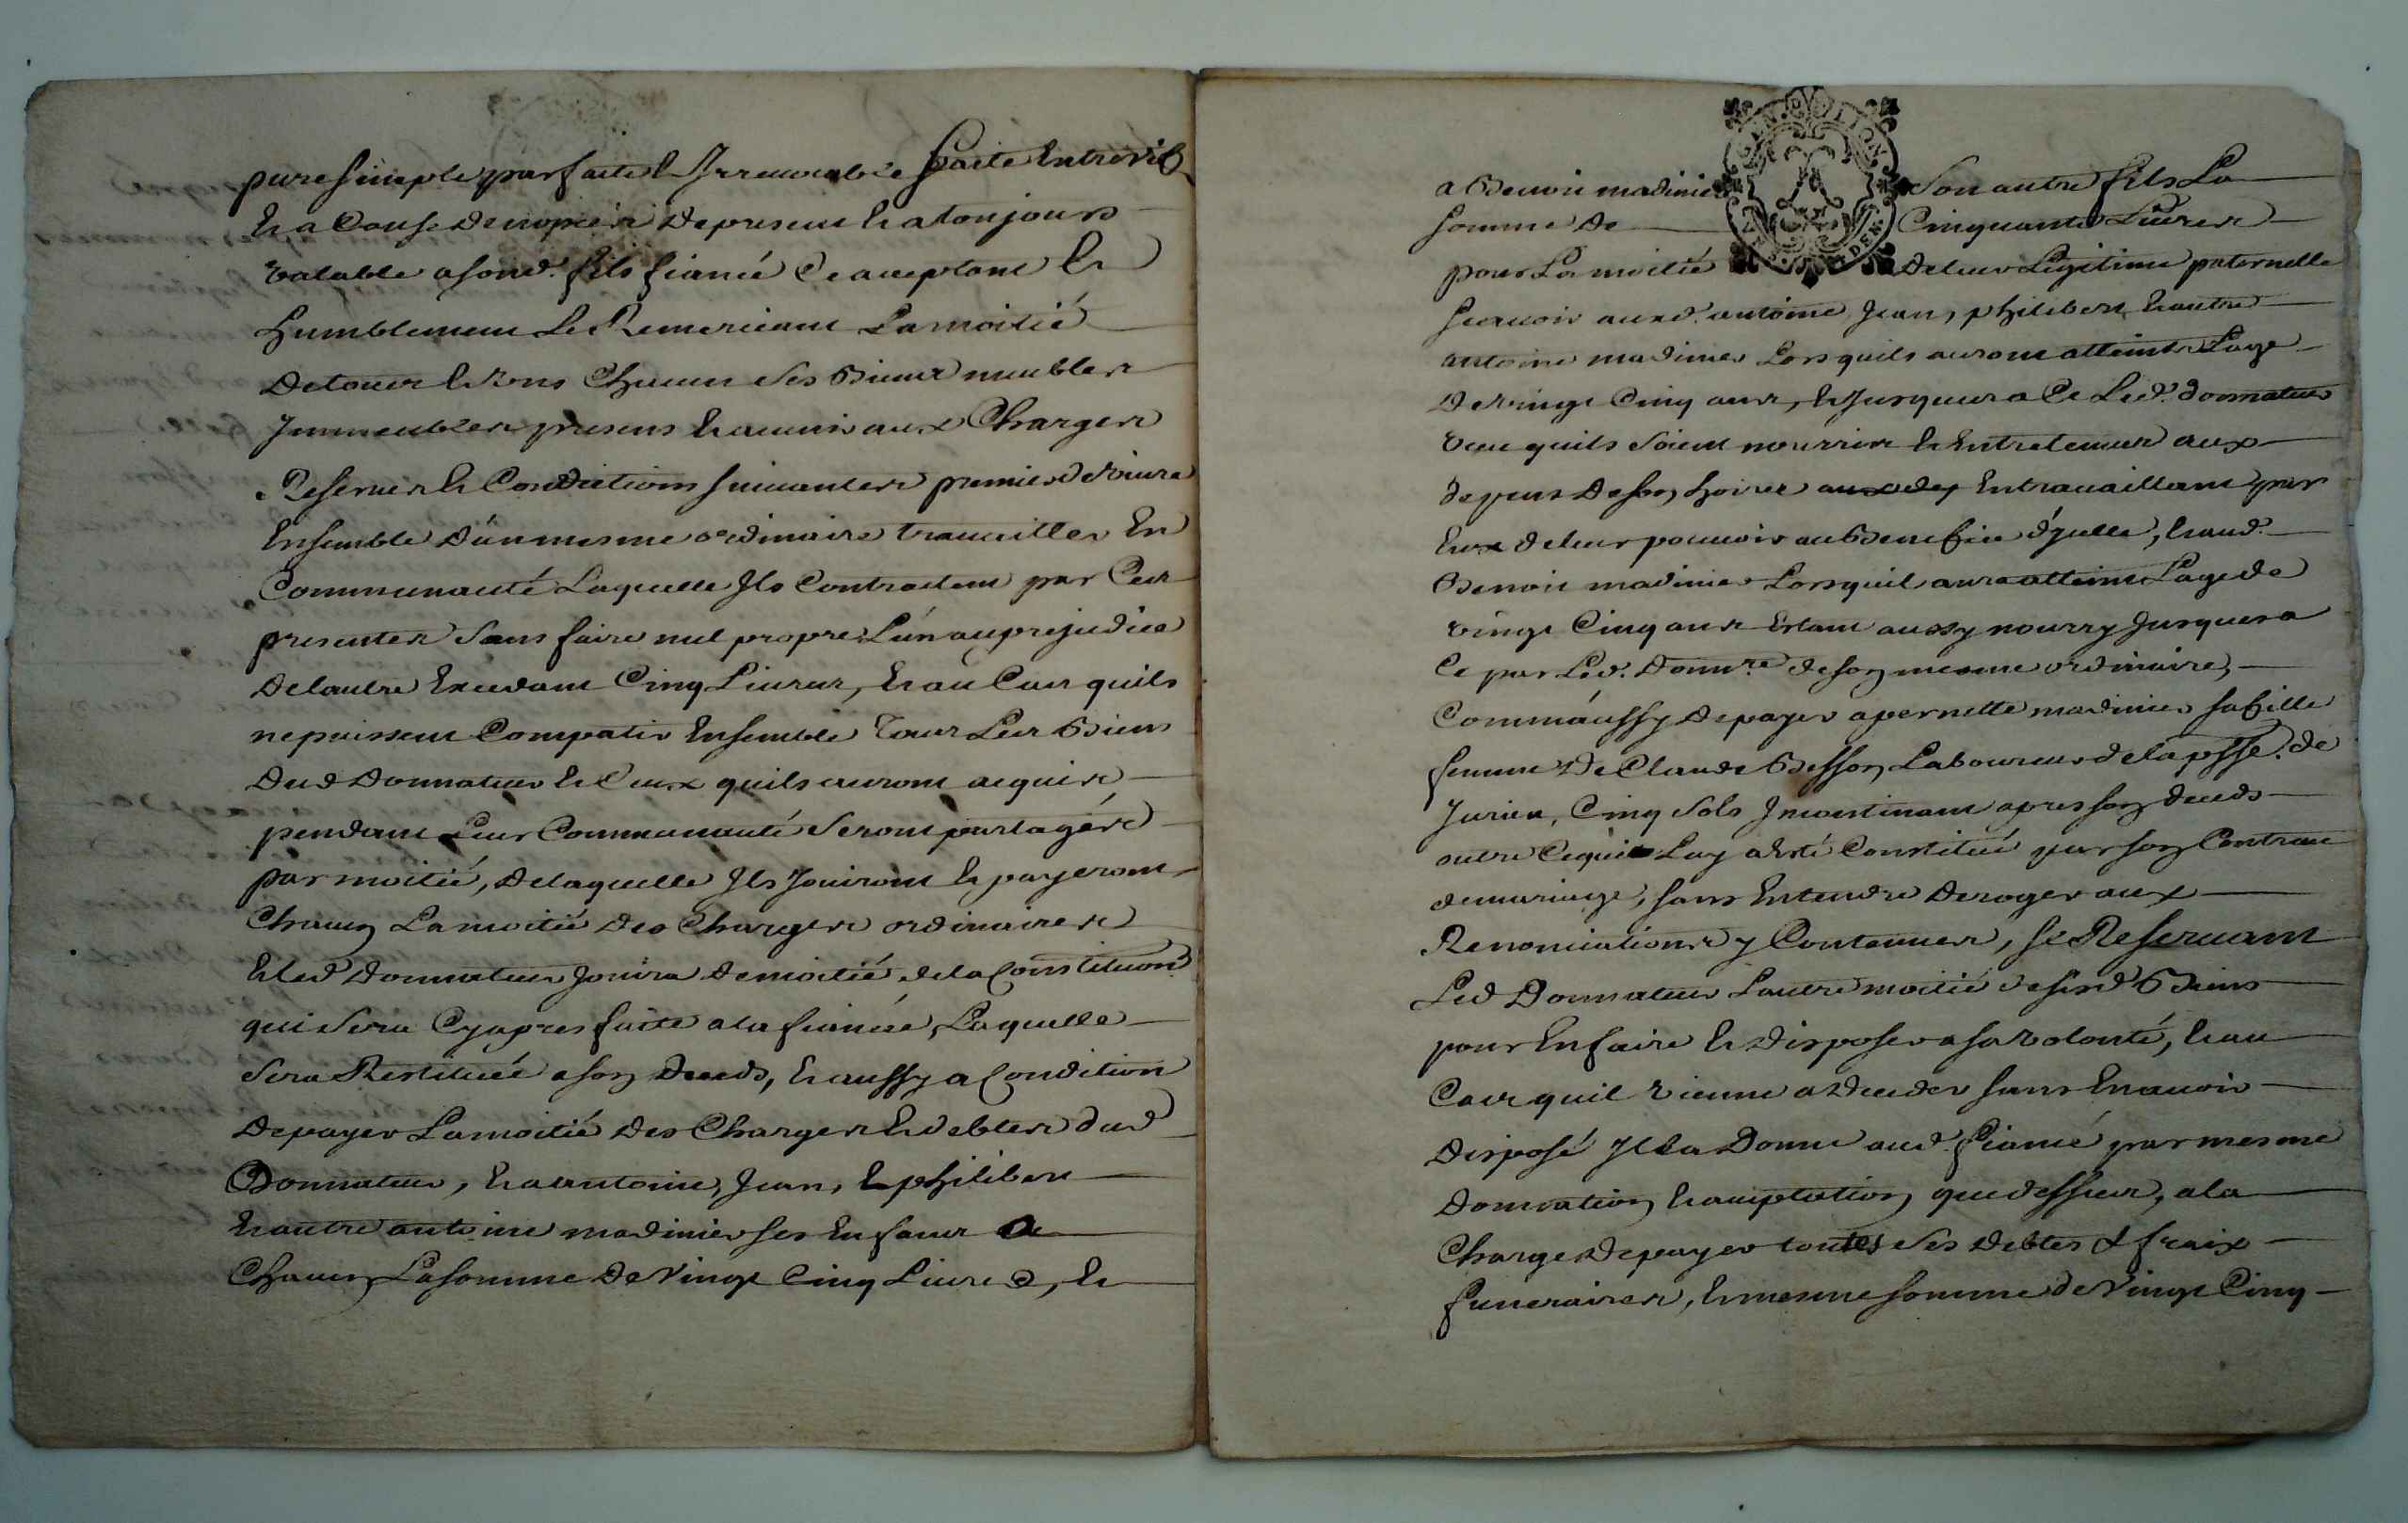 pure simple parfaite & Irreuocable faite Entrevifs
Et a Cause de nopces de present Et a tousjours
valable a sond. fils fiancé Ce acceptant Et
humblement Le Remerciant La moitié
De tous Et Uns Chacuns ses Biens meubles
Immeubles presens Et auenir aux Charges
Reserues Et Conditions suiuantes premier de viure
Ensemble D'un mesme ordinaire trauailler En
Communauté Laquelle Ils Contractent par Ces
presentes sans faire nul propre L'un au prejudice
De lautre Excedant Cinq Liures, Et au Cas quils
ne puissent Compatir Ensemble Tous Les Biens
Dud Donnateur Et Ceux quils auront acquis
pendant Leur Communauté seront partagés
par moitié, de laquelle Ils Jouiront Et payeront
Chacun La moitié des Charges ordinaires
Et led Donnateur Jouira de moitié de la Constituon
qui sera Cy apres faite a la fiancée, Laquelle
sera Restituée a son Deceds, Et aussy a Condition
De payer La moitié des Charges Et debtes dud
Donnateur, Et a antoine, Jean, Et philibert
Et autre antoine madinier ses Enfans a
Chacun La somme de Vingt Cinq Liures, Et
a Benoit madinier son autre fils La
somme De Cinquante Liures
pour La moitié de leur Legitime paternelle
scauoir aux d. antoine Jean, philibert, Et autre
antoine madinier Lors quils auront atteints Lage
De vingt Cinq ans, Et Jusques a Ce Led. donnateur
veut quils soient nourris Et Entretenus aux
depens De son hoirie Entrauaillant par
Eux de leur pouvoir au Benefice d'ycelle, Et aud.
Benoit madinier Lorsquil aura atteint Lage de
vingt Cinq ans Estant aussy nourry Jusques a
Ce par Led. Donnre. de son mesme ordinaire,
Comm'aussy de payer a pernette madinier sa fille
femme De Claude Besson Laboureur de la psse. de
Jurieu, Cinq sols Incontinant apres son deceds
outre Ce qui Luy a Esté Constitué par son Contract
de mariage, sans Entendre deroger aux
Renonciations y Contenues, se Reseruant
Led Donnateur Lautre moitié de sesd Biens
pour En faire Et disposer a sa volonté, Et au
Cas quil vienne a deceder sans En auoir
disposé Il La Donne aud. fiancé par mesme
donnation Et acceptation que dessus, a la
Charge de payer toutes ses debtes & fraix
funeraires, Et mesme somme de Vingt Cinq